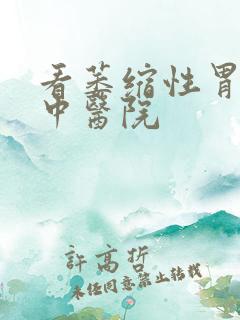 看萎缩性胃
中醫院
許高哲
未经同意禁止转载